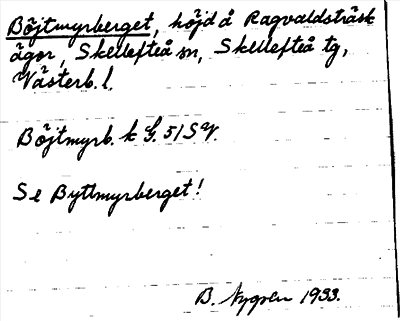 Böjtmyrberget, höjd å Ragvaldsträsk
ägor, Skellefteå sn, Skellefteå tg,
Västerb. l.
Böjtmyrb. k G. 51 SV.
Se Bytlmyrberget!
B. Nygren 1933.